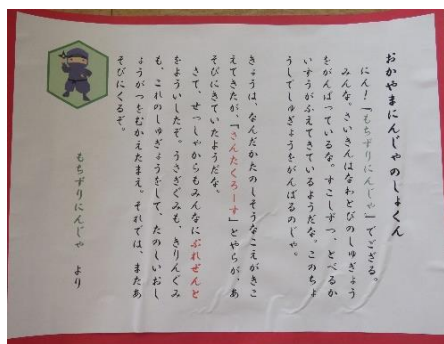 おかやまにんじゃのしょくん
にん！「もちずりにんじゃ」でござる。
みんな。さいきんはなわとびのしゅぎょう
をがんばっているな。すこしずつ、とべるか
いすうがふえてきているようだな。このちょ
うしでしゅぎょうをがんばるのじゃ。
きょうは、なんだかたのしそうなこえがきこ
えてきたが、「さんたくろーす」とやらが、あ
そびにきていたようだな。
さて、せっしゃからもみんなにぷれぜんと
をよういしたぞ。うさぎぐみも、きりんぐみ
も、これのしゅぎょうをして、たのしいおし
ょうがつをむかえたまえ。それでは、またあ
そびにくるぞ。
もちずりにんじゃ　より